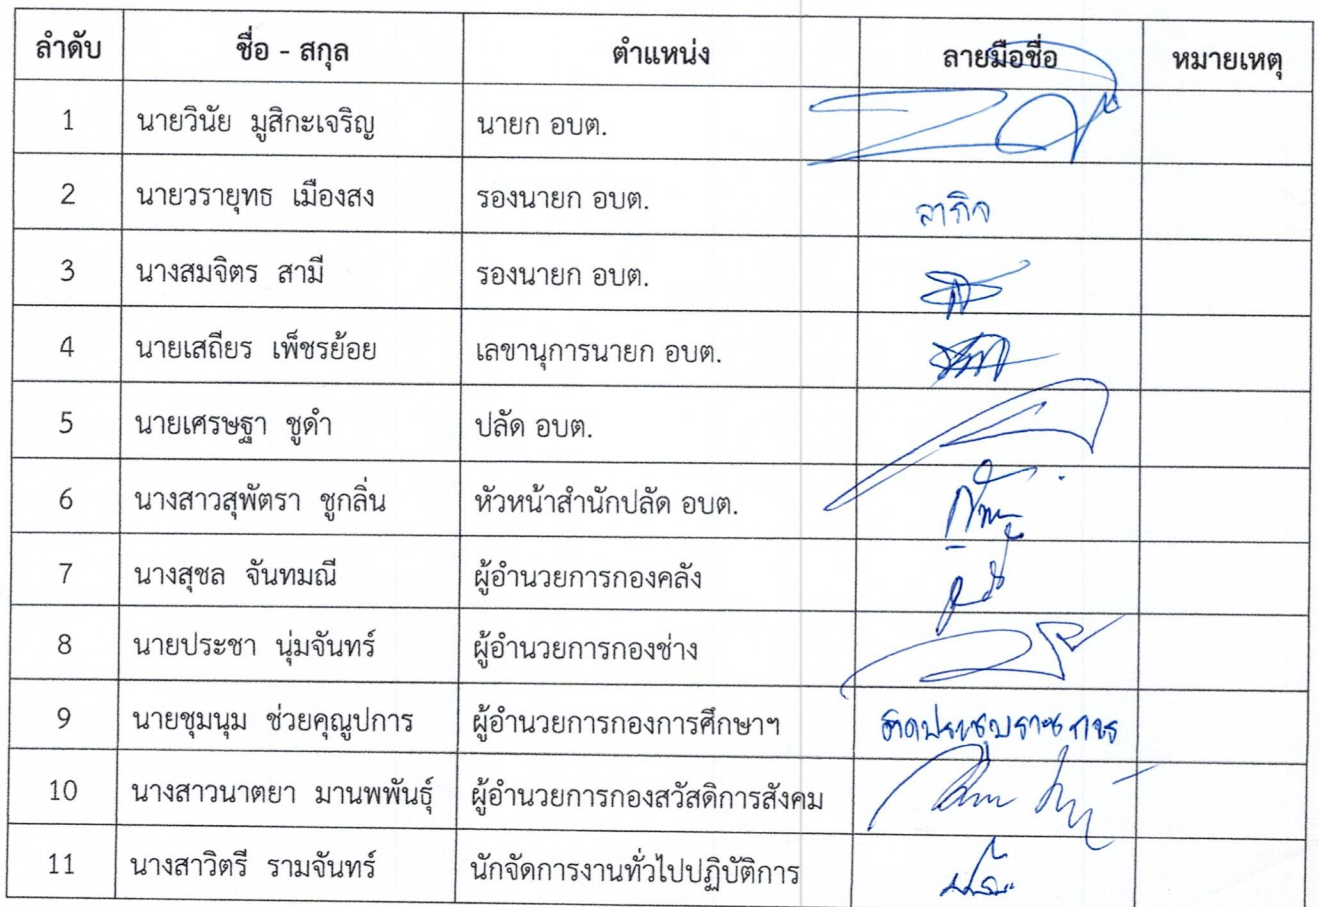 ลำดับ ชื่อ - สกุล ตำแหน่ง ลายมือชื่อ หมายเหตุ
1 นายวินัย มูสิกะเจริญ นายก อบต.
2 นายวรายุทธ เมืองสง รองนายก อบต. ลากิจ
3 นางสมจิตร สามี รองนายก อบต.
4 นายเสถียร เพ็ชรย้อย เลขานุการนายก อบต.
5 นายเศรษฐา ชูดำ ปลัด อบต.
6 นางสาวสุพัตรา ชูกลิ่น หัวหน้าสำนักปลัด อบต.
7 นางสุชล จันทมณี ผู้อำนวยการกองคลัง
8 นายประชา นุ่มจันทร์ ผู้อำนวยการกองช่าง
9 นายชุมนุม ช่วยคุณูปการ ผู้อำนวยการกองการศึกษาฯ ติดประชุมราชการ
10 นางสาวนาตยา มานพพันธุ์ ผู้อำนวยการกองสวัสดิการสังคม
11 นางสาวิตรี รามจันทร์ นักจัดการงานทั่วไปปฏิบัติการ